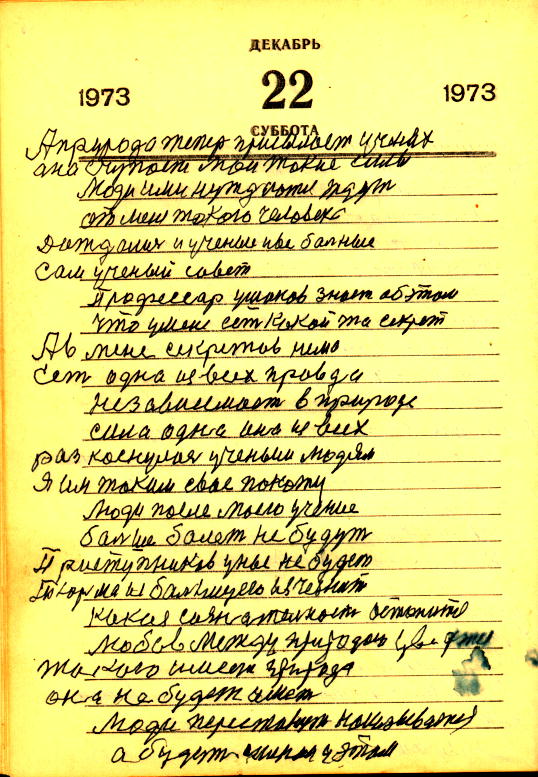 ДЕКАБРЬ
1973 22 1973
СУББОТА
А природа теперь присилает ученях
она
Люди ими нуждаютя ждут
от мене такого человека
Дождалих и учение и все балные
Сам ученый совет
Профессар ушаков знает об этом
Что умене ест какой та секрет
А в мене секретов нема
Ест одна из всех правда
Независемаст в природе
сила одна она из всех
раз коснулая ученым людям
Я им таким свае покажу
Люди после моего учение
балше балет не будут
Приступников у нас не будет
Тюрма и балницы
Какая сознателност
любов между природаю
такого имеет природа
она не будет
Люди перестанут
а будут и этом